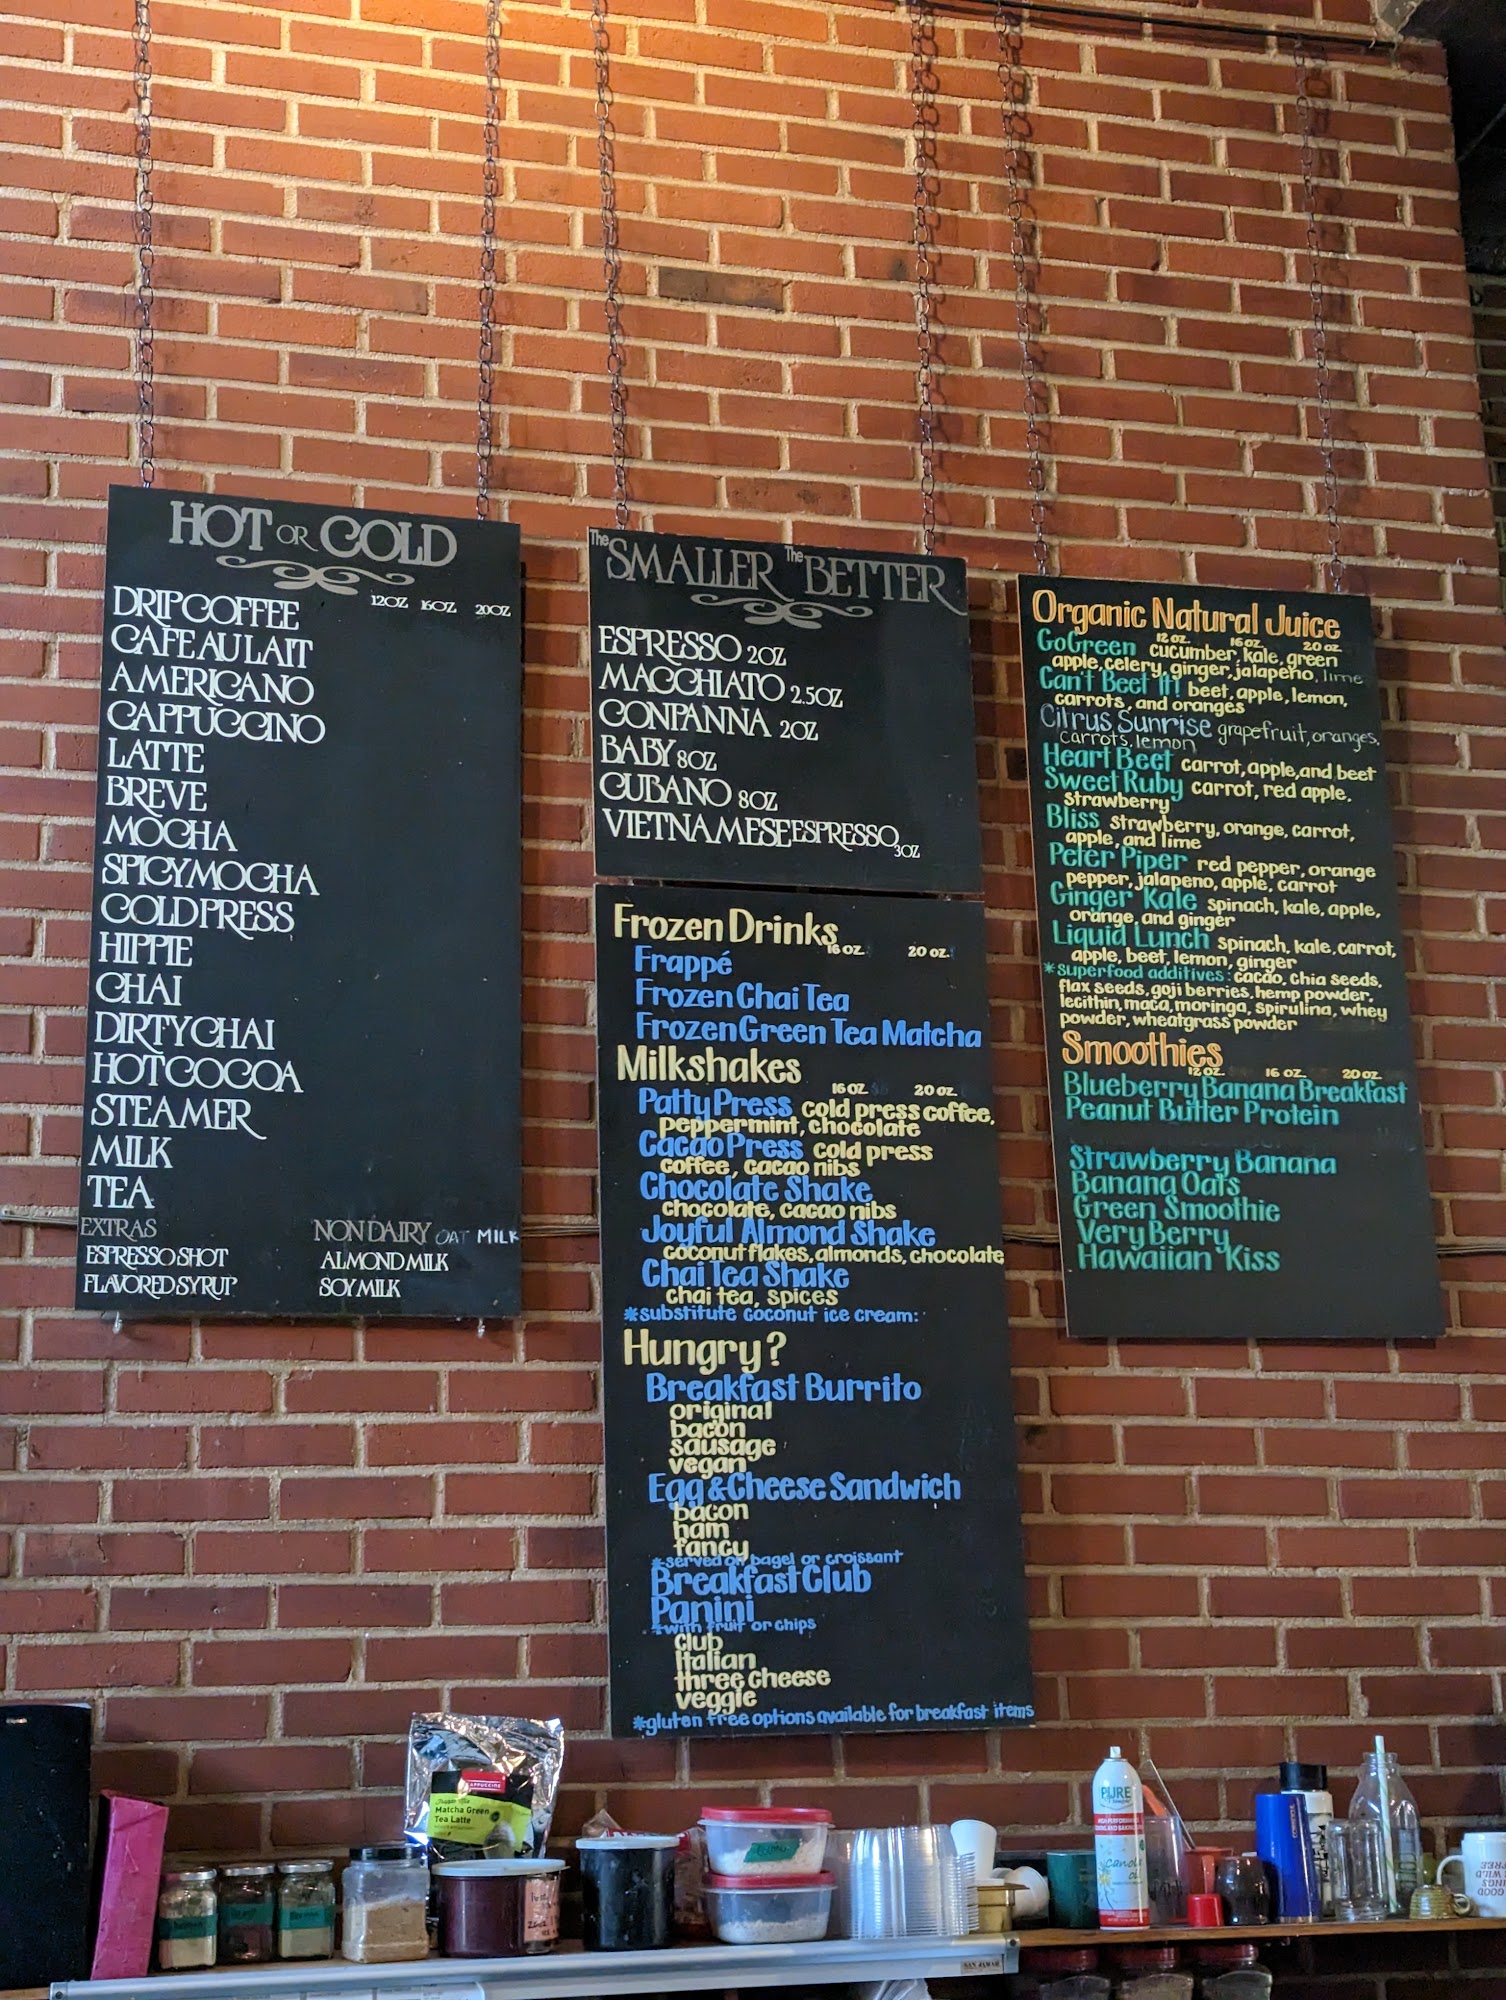 HOT OR COLD
12OZ 16OZ 20OZ
DRIP COFFEE
CAFE AU LAIT
AMERICANO
CAPPUCCINO
LATTE
BREVE
MOCHA
SPICY MOCHA
COLD PRESS
HIPPIE
CHAI
DIRTY CHAI
HOT COCOA
STEAMER
MILK
TEA
EXTRAS
ESPRESSO SHOT
FLAVORED SYRUP
NON DAIRY OAT MILK
ALMOND MILK
SOY MILK
The SMALLER The BETTER
ESPRESSO 2OZ
MACCHIATO 2.5OZ
CONPANNA 2OZ
BABY 8OZ
CUBANO 8OZ
VIETNAMESE ESPRESSO 3OZ
Frozen Drinks
16 oz. 20 oz.
Frappé
Frozen Chai Tea
Frozen Green Tea Matcha
Milkshakes
16 oz 20 oz.
Patty Press cold press coffee,
peppermint, chocolate
Cacao Press cold press
coffee, cacao nibs
Chocolate Shake
chocolate, cacao nibs
Joyful Almond Shake
coconut flakes, almonds, chocolate
Chai Tea Shake
chai tea, spices
*substitute coconut ice cream:
Hungry?
Breakfast Burrito
original
bacon
sausage
vegan
Egg & Cheese Sandwich
bacon
ham
fancy
*served on bagel or croissant
Breakfast Club
Panini
*with fruit or chips
club
Italian
three cheese
veggie
*gluten free options available for breakfast items
Organic Natural Juice
12 oz. 16 oz. 20 oz.
GoGreen cucumber, kale, green
apple, celery, ginger, jalapeño, lime
Can't Beet It! beet, apple, lemon,
carrots, and oranges
Citrus Sunrise grapefruit, oranges,
carrots, lemon
Heart Beet carrot, apple, and beet
Sweet Ruby carrot, red apple,
strawberry
Bliss strawberry, orange, carrot,
apple, and lime
Peter Piper red pepper, orange
pepper, jalapeno, apple, carrot
Ginger Kale spinach, kale, apple,
orange, and ginger
Liquid Lunch spinach, kale, carrot,
apple, beet, lemon, ginger
*superfood additives: cacao, chia seeds,
flax seeds, goji berries, hemp powder,
lecithin, maca, moringa, spirulina, whey
powder, wheatgrass powder
Smoothies
12 oz. 16 oz. 20 oz.
Blueberry Banana Breakfast
Peanut Butter Protein
Strawberry Banana
Banana Oats
Green Smoothie
Very Berry
Hawaiian Kiss
CAPPUCCINE
Matcha Green
Tea Latte
PURE
canola
SAN JAMAR